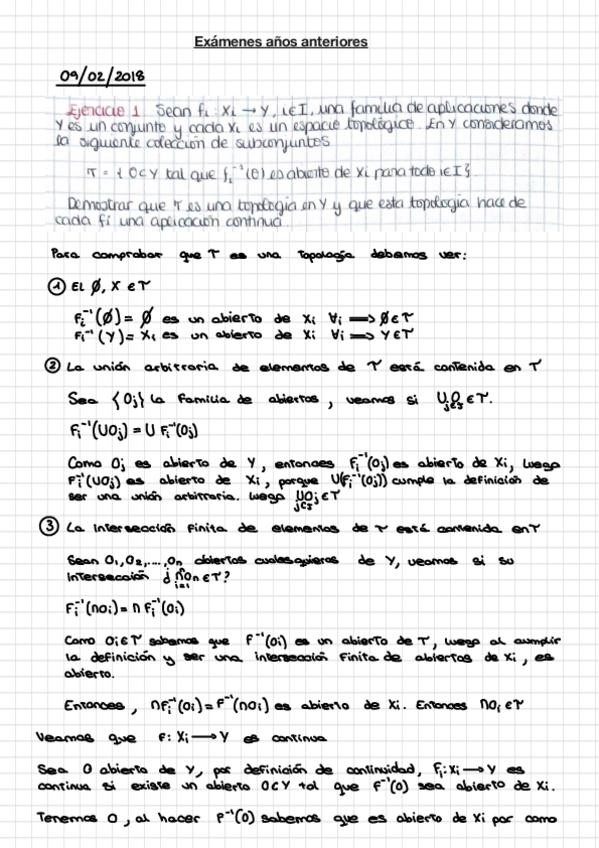 Exámenes años anteriores
09/02/2018
Ejercicio 1 Sean fi: Xi → Y, i∈I, una familia de aplicaciones donde
Y es un conjunto y cada Xi es un espacio topológico. En Y consideramos
la siguiente colección de subconjuntos
τ = {O⊂Y tal que fi⁻¹(O) es abierto de Xi para todo i∈I}.
Demostrar que τ es una topología en Y y que esta topología hace de
cada fi una aplicación continua.
Para comprobar que τ es una topología debemos ver:
① EL Ø, X ∈ τ
fi⁻¹(Ø) = Ø es un abierto de Xi ∀i ⟹ Ø∈τ
fi⁻¹(Y) = Xi es un abierto de Xi ∀i ⟹ Y∈τ
② La unión arbitraria de elementos de τ está contenida en τ
Sea {Oj} la familia de abiertos, veamos si ∪Oj ∈ τ.
j∈J
fi⁻¹(∪Oj) = ∪ fi⁻¹(Oj)
Como Oj es abierto de Y, entonces fi⁻¹(Oj) es abierto de Xi, luego
fi⁻¹(∪Oj) es abierto de Xi, porque ∪(fi⁻¹(Oj)) cumple la definición de
ser una unión arbitraria. luego ∪Oj∈τ
j∈J
③ La intersección finita de elementos de τ está contenida en τ
Sean O₁, O₂,...., On abiertos cualesquieras de Y, veamos si su
intersección ¿ ∩On ∈ τ?
i=1
fi⁻¹(∩Oi) = ∩ fi⁻¹(Oi)
Como Oi∈τ sabemos que f⁻¹(Oi) es un abierto de τ, luego al cumplir
la definición y ser una intersección finita de abiertos de Xi, es
abierto.
Entonces, ∩fi⁻¹(Oi) = f⁻¹(∩Oi) es abierto de Xi. Entonces ∩Oi ∈ τ
Veamos que f: Xi → Y es continua
Sea O abierto de Y, por definición de continuidad, fi: Xi → Y es
continua si existe un abierto O⊂Y tal que f⁻¹(O) sea abierto de Xi.
Tenemos O, al hacer f⁻¹(O) sabemos que es abierto de Xi por como